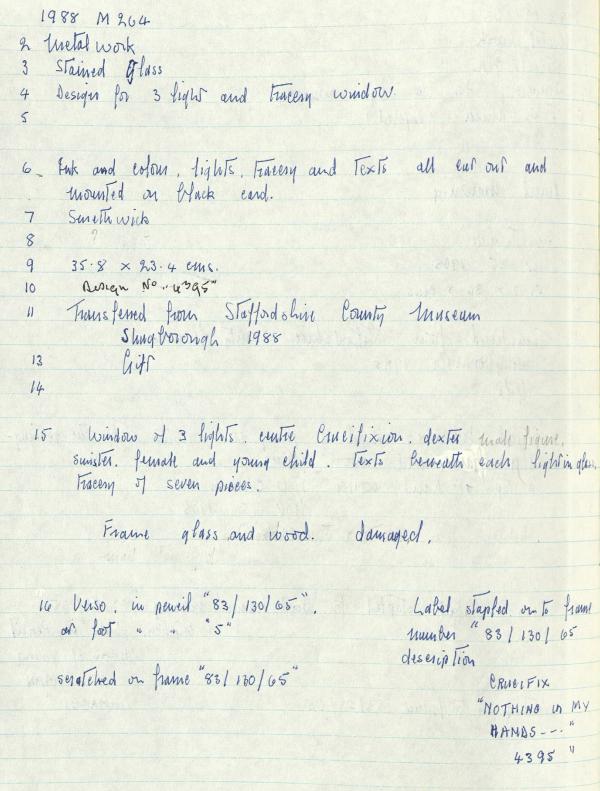 1988 M 264
2 Metalwork
3 Stained Glass
4 Design for 3 light and tracery window.
5
6 Ink and colour. lights, tracery and Texts all cut out and
mounted on black card.
7 Smethwick
8 ? -
9 35.8 x 23.4 cms.
10 Design No "4395"
11 Transferred from Staffordshire County Museum
Shugborough 1988
13 Gift
14
15 Window of 3 lights. centre Crucifixion. dexter male figure,
sinister. female and young child. Texts beneath each light in glass
Tracery of seven pieces.
Frame glass and wood. damaged.
16 Verso. in pencil "83/130/65".
at foot " " "5"
scratched on frame "83/130/65"
Label stapled on to frame
number "83/130/65
description
CRUCIFIX
"NOTHING IN MY
HANDS---"
4395 "